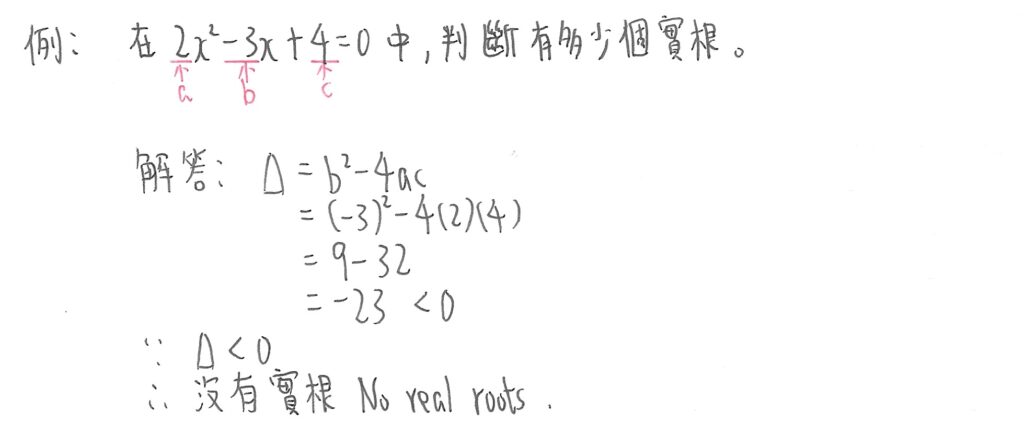 例: 在 2x²-3x+4=0 中,判斷有多少個實根。
a b c
解答: Δ = b²-4ac
= (-3)²-4(2)(4)
= 9-32
= -23 <0
∵ Δ<0
∴ 沒有實根 No real roots.